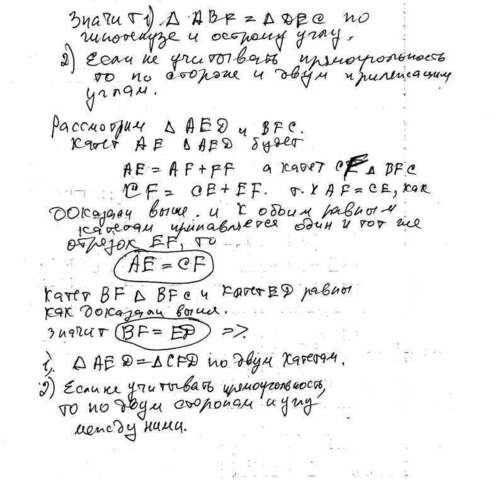 Значит 1). △ ABF = △ DEC по
гипотенузе и острому углу.
2) Если не учитывать прямоугольность
то по стороне и двум прилежащим
углам.
Рассмотрим △ AED и BFC.
Катет AE △ AED будет
AE = AF + FF а катет CF △ BFC
CF = CE + EF. т.к AF = CE, как
доказан выше. и к обоим равным
катетам прибавляется один и тот же
отрезок EF, то
AE = CF
Катет BF △ BFC и катет ED равны
как доказан выше.
значит BF = ED =>.
1). △ AED = △ CFD по двум катетам.
2) Если не учитывать прямоугольность,
то по двум сторонам и углу
между ними.